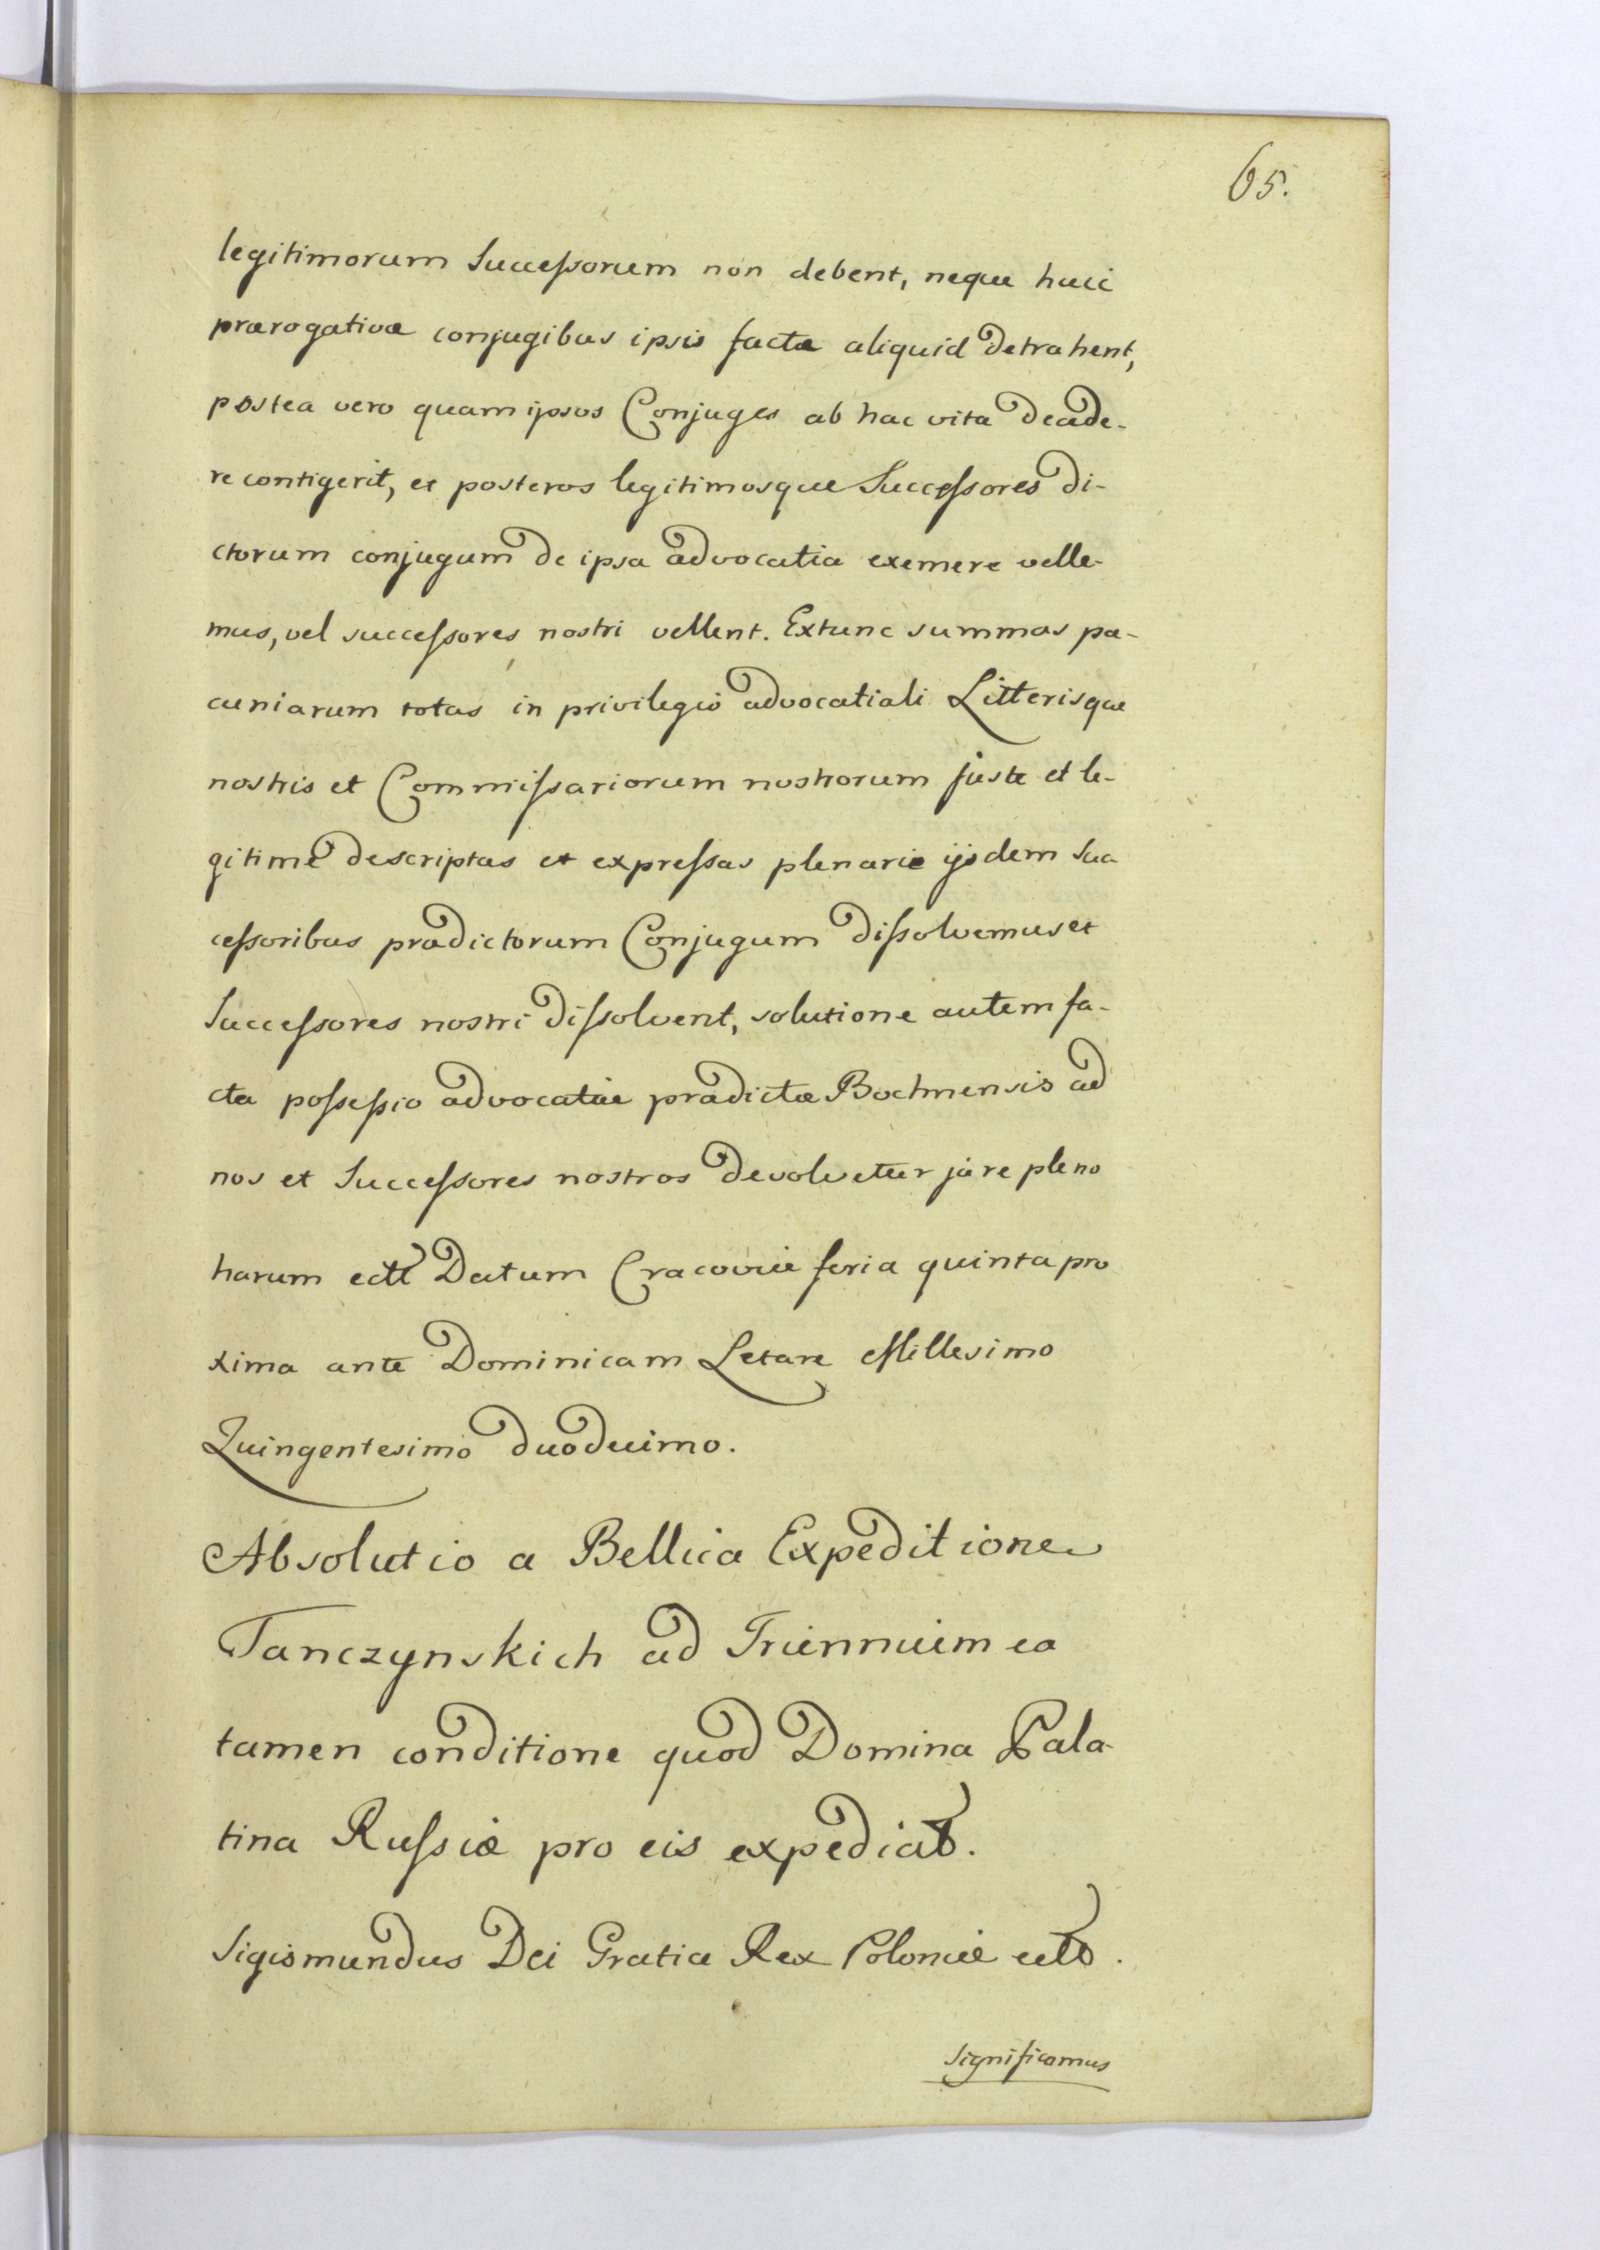 65.
legitimorum Successorum non debent, neque huic
prærogativæ conjugibus ipsis factæ aliquid detrahent,
postea vero quam ipsos Conjuges ab hac vita decede-
re contigerit, et posteros legitimosque Successores di-
ctorum conjugum de ipsa advocatia exemere velle-
mus, vel successores nostri vellent. Extunc summas pa-
cuniarum totas in privilegio advocatiali Litterisque
nostris et Commissariorum nostrorum juste et le-
gitime descriptas et expressas plenarie ijsdem Suc-
cessoribus prædictorum Conjugum dissolvemus et
Successores nostri dissolvent, solutione autem fa-
cta possessio advocatiæ prædictæ Bochnensis ad
nos et Successores nostros devolvetur jure pleno
harum ectt Datum Cracoviæ feria quinta pro
xima ante Dominicam Letare Millesimo
Quingentesimo duodecimo.
Absolutio a Bellica Expeditione
Tanczynskich ad Triennium ea
tamen conditione quod Domina Pala-
tina Russiæ pro eis expediat.
Sigismundus Dei Gratia Rex Poloniæ ectt.
Significamus